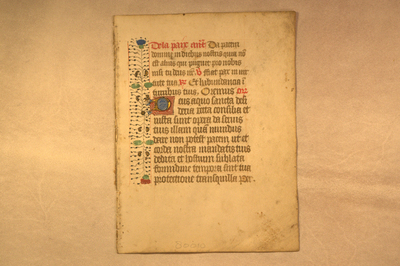 De la paix ant̄ Da pacem
domine in diebus nostris quia nō
est alius qui pugnet pro nobis
nisi tu deus nr̄ v̄ fiat pax in uir
tute tua R Et habundancia ī
turribus tuis. Oremus oro
Deus a quo sancta desi
deria recta consilia et
iusta sunt opera da seruis
tuis illam quā mundus
dare non potest pacem ut et
corda nostra mandatis tuis
dedita et hostium sublata
formidine tempora sint tua
protectione tranquilla Per